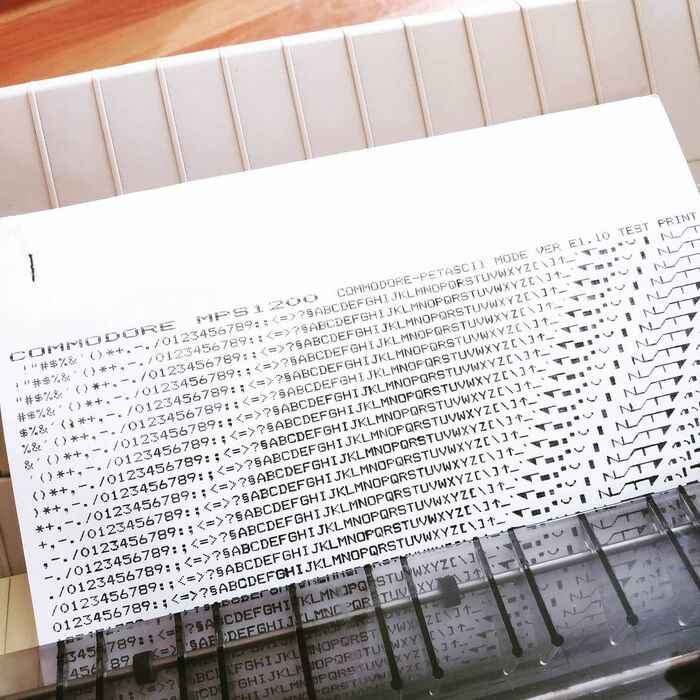 COMMODORE MPS1200 COMMODORE-PETASCII MODE VER E1.10 TEST PRINT
!"#$%&'()*+,-./0123456789:;<=>?§ABCDEFGHIJKLMNOPQRSTUVWXYZ[\]↑_
"#$%&'()*+,-./0123456789:;<=>?§ABCDEFGHIJKLMNOPQRSTUVWXYZ[\]↑_
#$%&'()*+,-./0123456789:;<=>?§ABCDEFGHIJKLMNOPQRSTUVWXYZ[\]↑_
$%&'()*+,-./0123456789:;<=>?§ABCDEFGHIJKLMNOPQRSTUVWXYZ[\]↑_
%&'()*+,-./0123456789:;<=>?§ABCDEFGHIJKLMNOPQRSTUVWXYZ[\]↑_
&'()*+,-./0123456789:;<=>?§ABCDEFGHIJKLMNOPQRSTUVWXYZ[\]↑_
'()*+,-./0123456789:;<=>?§ABCDEFGHIJKLMNOPQRSTUVWXYZ[\]↑_
()*+,-./0123456789:;<=>?§ABCDEFGHIJKLMNOPQRSTUVWXYZ[\]↑_
)*+,-./0123456789:;<=>?§ABCDEFGHIJKLMNOPQRSTUVWXYZ[\]↑_
*+,-./0123456789:;<=>?§ABCDEFGHIJKLMNOPQRSTUVWXYZ[\]↑_
+,-./0123456789:;<=>?§ABCDEFGHIJKLMNOPQRSTUVWXYZ[\]↑_
,-./0123456789:;<=>?§ABCDEFGHIJKLMNOPQRSTUVWXYZ[\]↑_
-./0123456789:;<=>?§ABCDEFGHIJKLMNOPQRSTUVWXYZ[\]↑_
./0123456789:;<=>?§ABCDEFGHIJKLMNOPQRSTUVWXYZ[\]↑_
/0123456789:;<=>?§ABCDEFGHIJKLMNOPQRSTUVWXYZ[\]↑_
0123456789:;<=>?§ABCDEFGHIJKLMNOPQRSTUVWXYZ[\]↑_